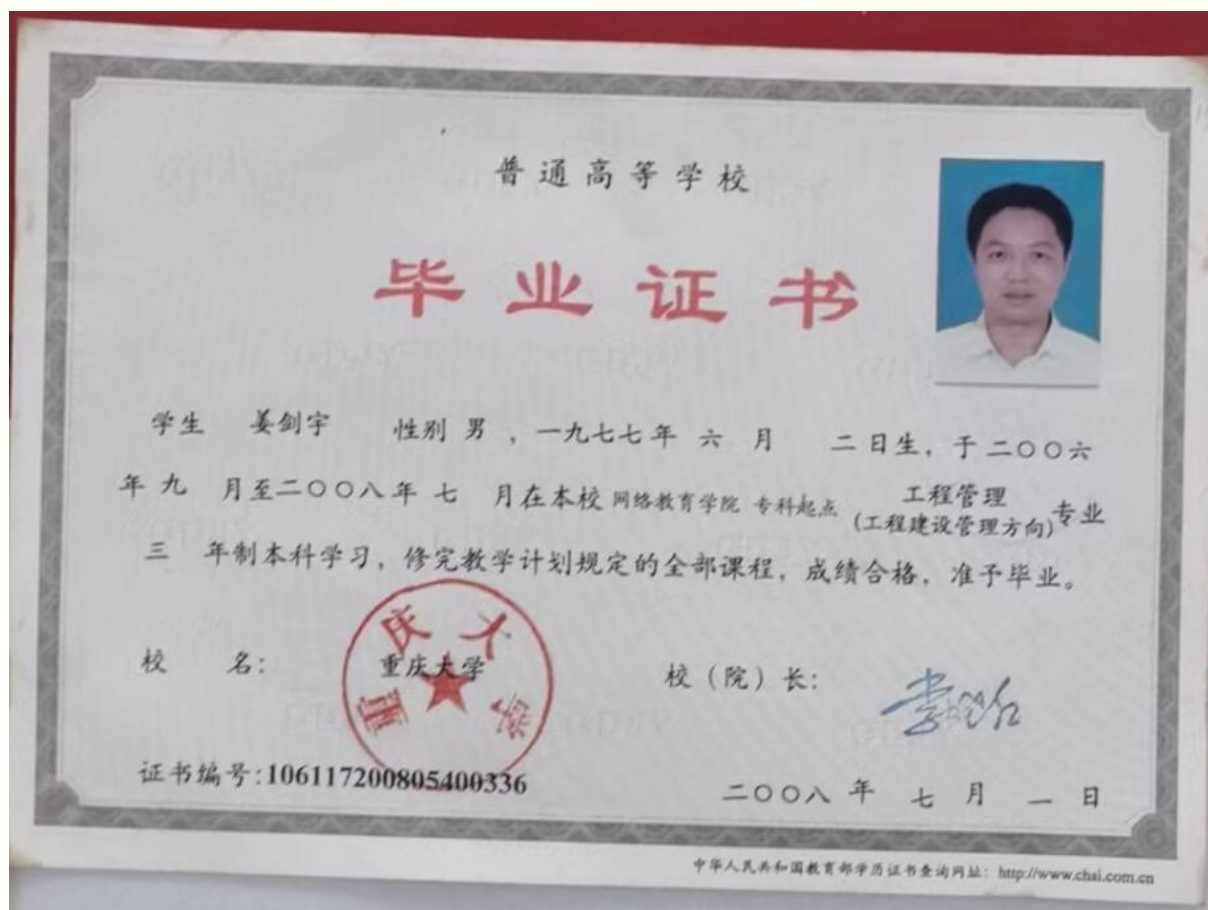 普通高等学校
毕业证书
学生 姜剑宇 性别 男 ，一九七七年 六 月 二日生，于二〇〇六
年 九 月至二〇〇八年 七 月在本校 网络教育学院 专科起点 工程管理 专业
(工程建设管理方向)
三 年制本科学习，修完教学计划规定的全部课程，成绩合格，准予毕业。
校 名： 重庆大学 校（院）长：
重庆大学
证书编号:106117200805400336
二〇〇八 年 七 月 一 日
中华人民共和国教育部学历证书查询网址：http://www.chsi.com.cn